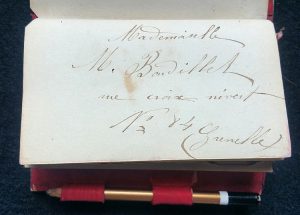 Mademoiselle
M. Boudillet
rue croix nivert
No 84 Grenelle